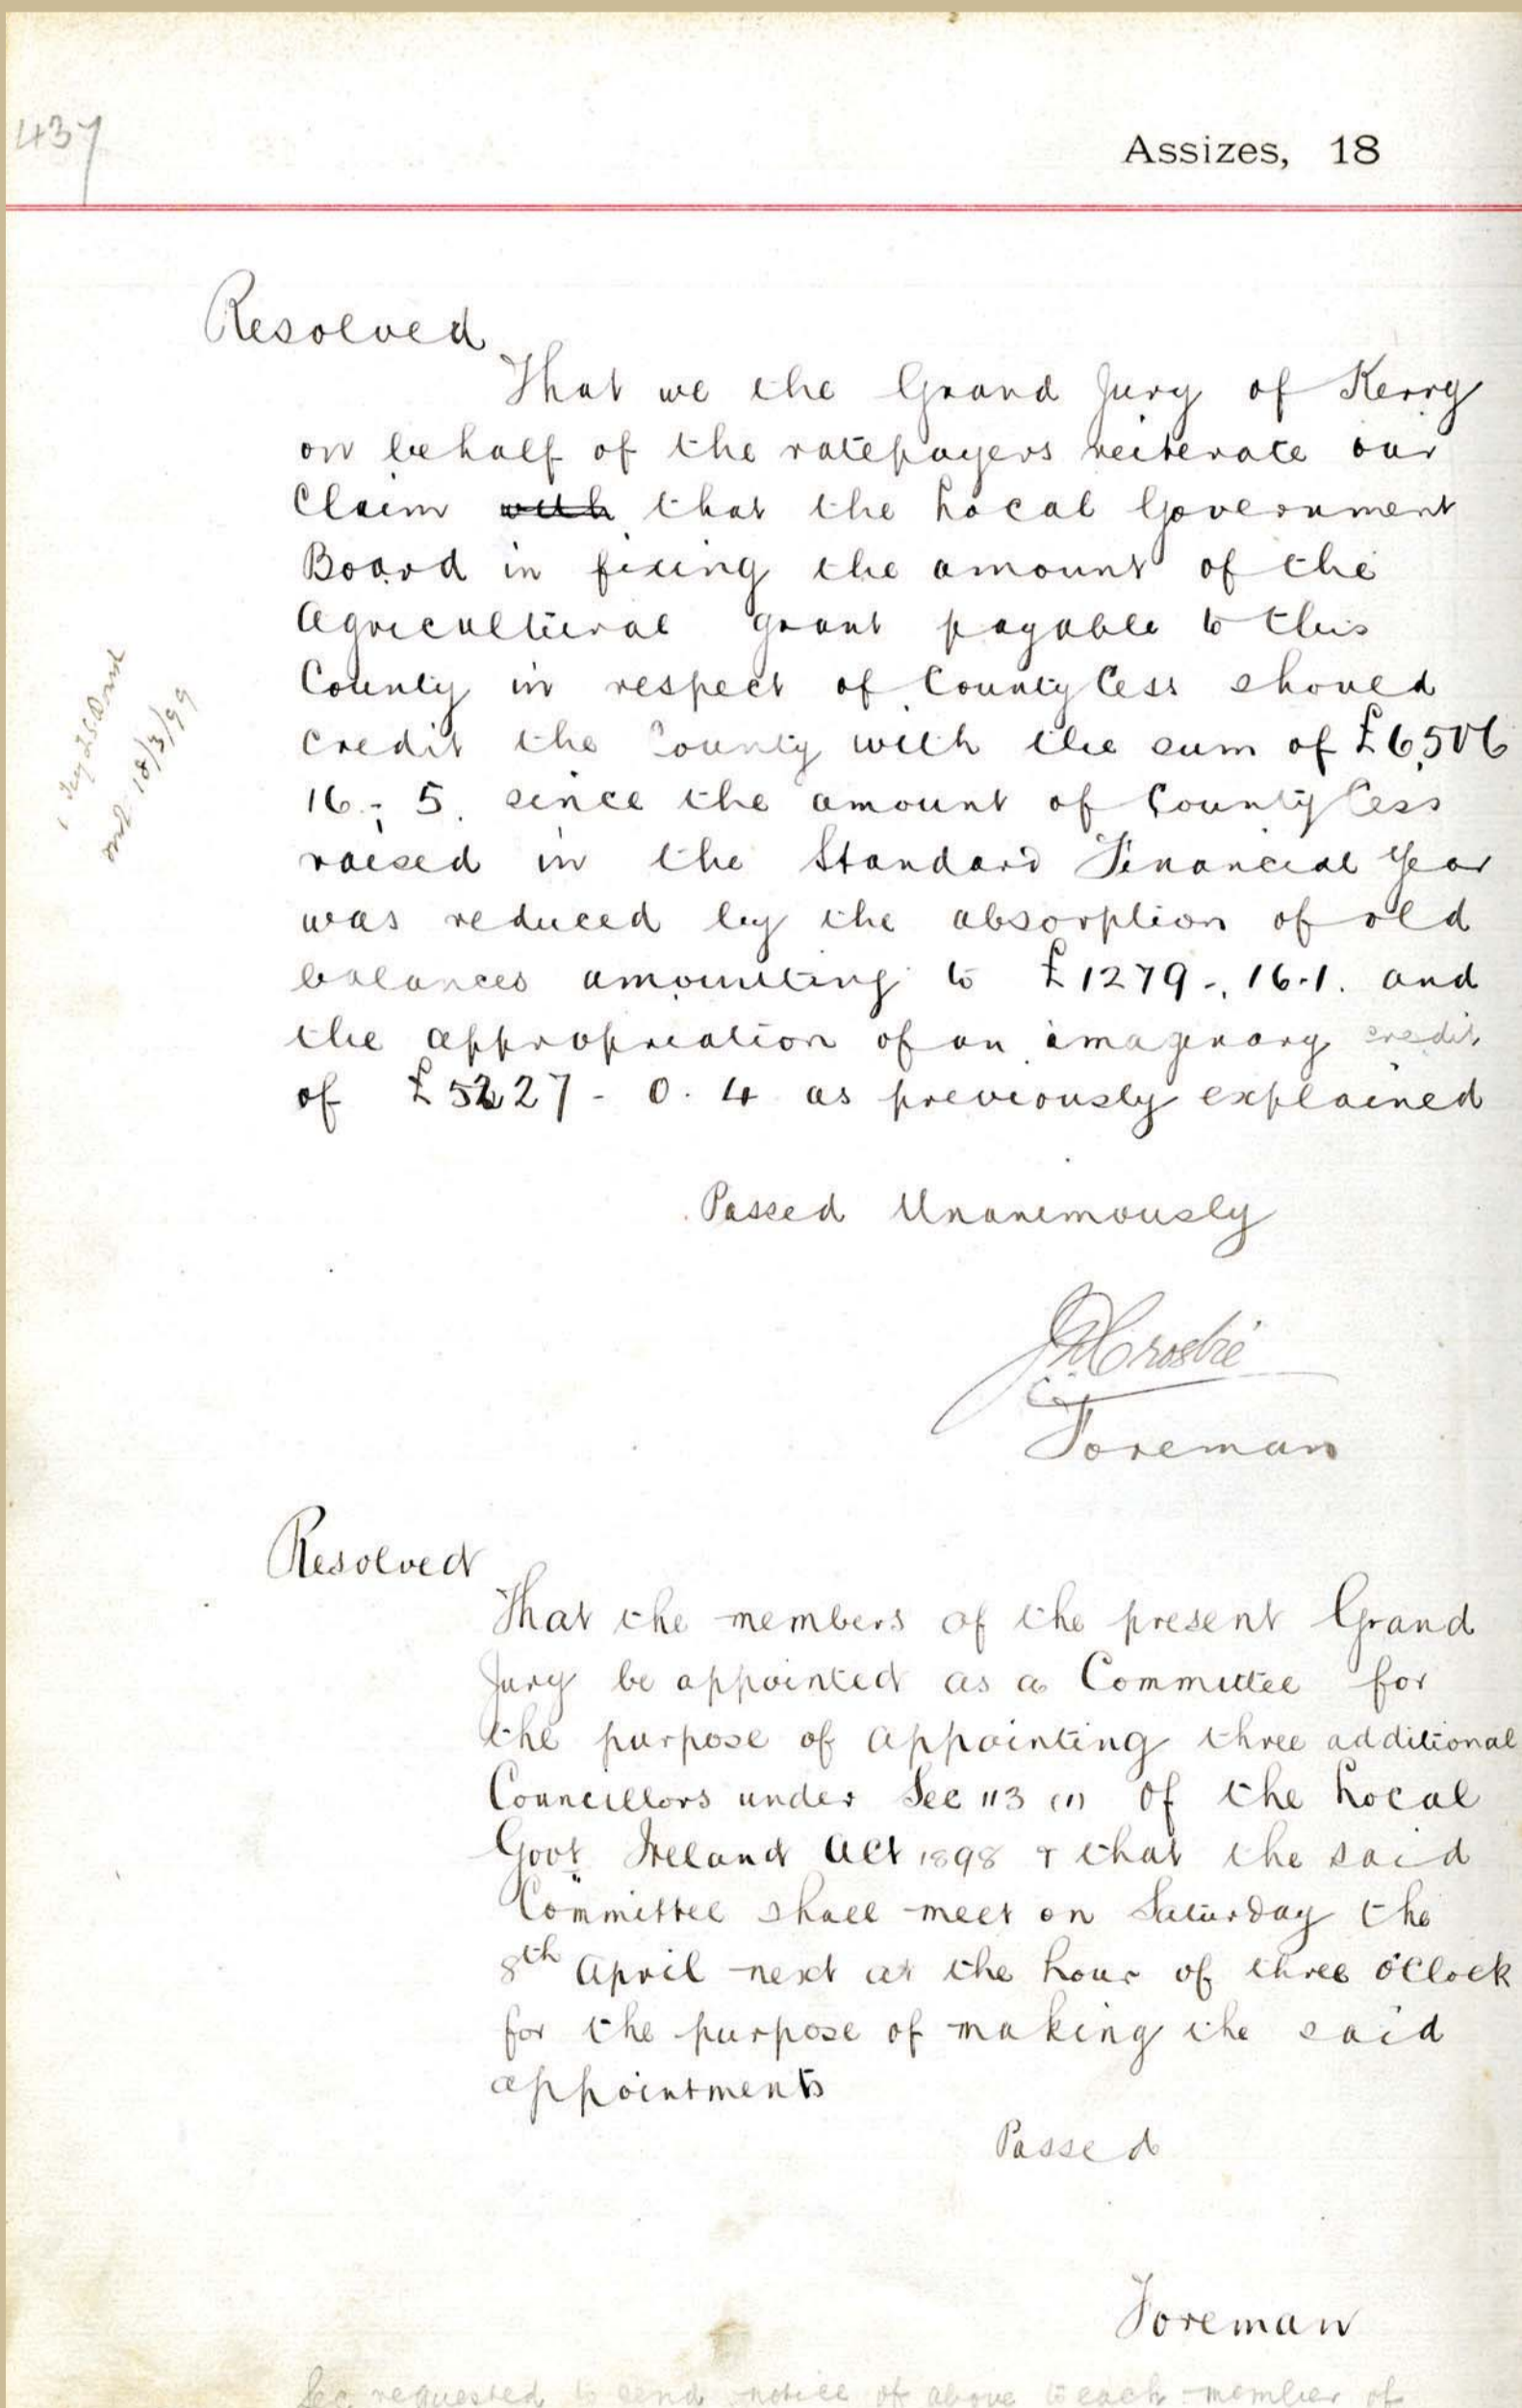 437
Assizes, 18
Resolved
That we the Grand Jury of Kerry
on behalf of the ratepayers reiterate our
Claim with that the Local Government
Board in fixing the amount of the
Agricultural grant payable to this
County in respect of County Cess should
credit the County with the sum of £6,506
16.- 5. since the amount of County Cess
raised in the Standard Financial Year
was reduced by the absorption of old
balances amounting to £1279-. 16.1. and
the appropriation of an imaginary credit
of £5227 - 0. 4 as previously explained
18/3/99
Passed Unanimously
Crosbie
Foreman
Resolved
That the members of the present Grand
Jury be appointed as a Committee for
the purpose of appointing three additional
Councillors under Sec 113 (1) of the Local
Govt Ireland Act 1898 & that the said
Committee shall meet on Saturday the
8th April next at the hour of three o'Clock
for the purpose of making the said
appointments
Passed
Foreman
Sec requested to send notice of above to each member of